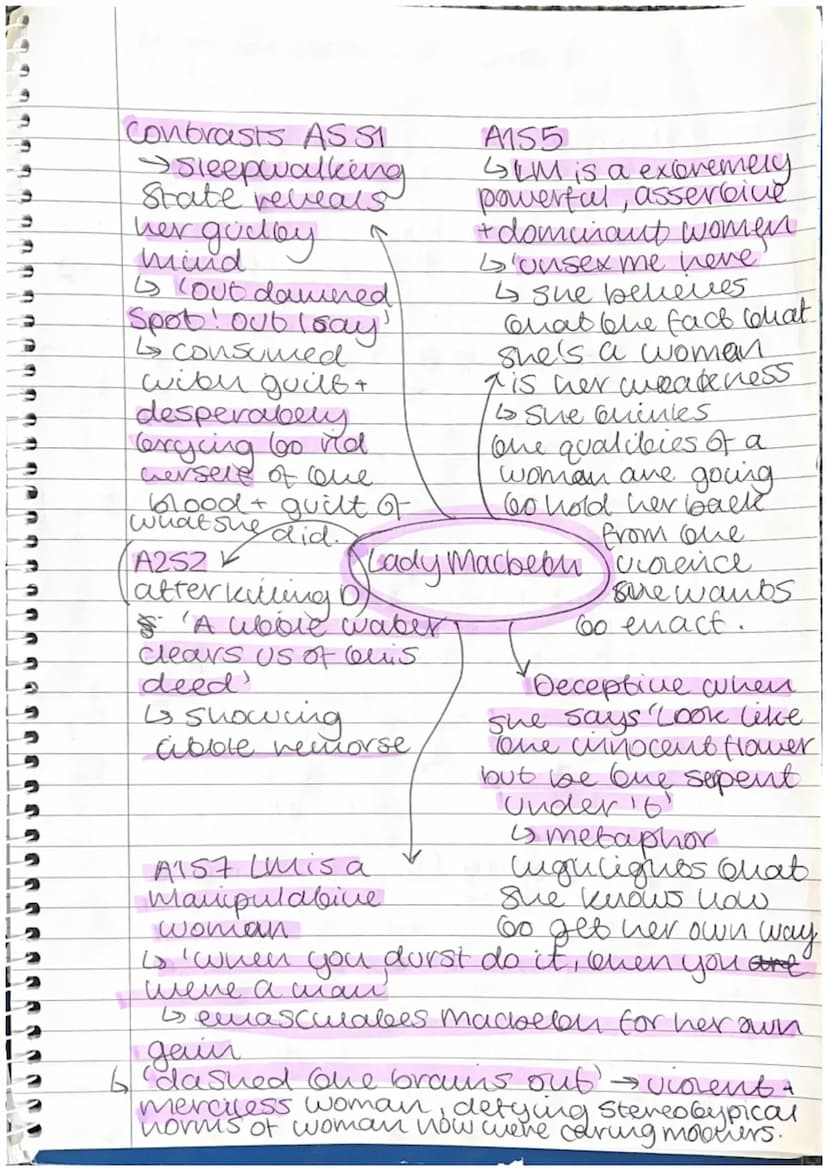 Contrasts A5S1
→ sleepwalking
state reveals
her guilty
mind
↳ 'out damned
spot! out I say'
↳ consumed
with guilt +
desperately
trying to rid
herself of the
blood + guilt of
what she did.
A1S5
↳ LM is a extremely
powerful, assertive
+ dominant women
↳ 'unsex me here'
↳ she believes
that the fact that
she's a woman
is her weakness
↳ she thinks
the qualities of a
woman are going
to hold her back
from the
violence
she wants
to enact.
Lady Macbeth
A2S2
(after killing D)
'A little water
clears us of this
deed'
↳ showing
little remorse
Deceptive when
she says 'Look like
the innocent flower
but be the serpent
under 't'
↳ metaphor
highlights that
she knows how
to get her own way
A1S7 LM is a
manipulative
woman
↳ 'when you durst do it, then you are
were a man'
↳ emasculates Macbeth for her own
gain
↳ 'dashed the brains out' → violent +
merciless woman, defying stereotypical
norms of woman how were caring mothers.